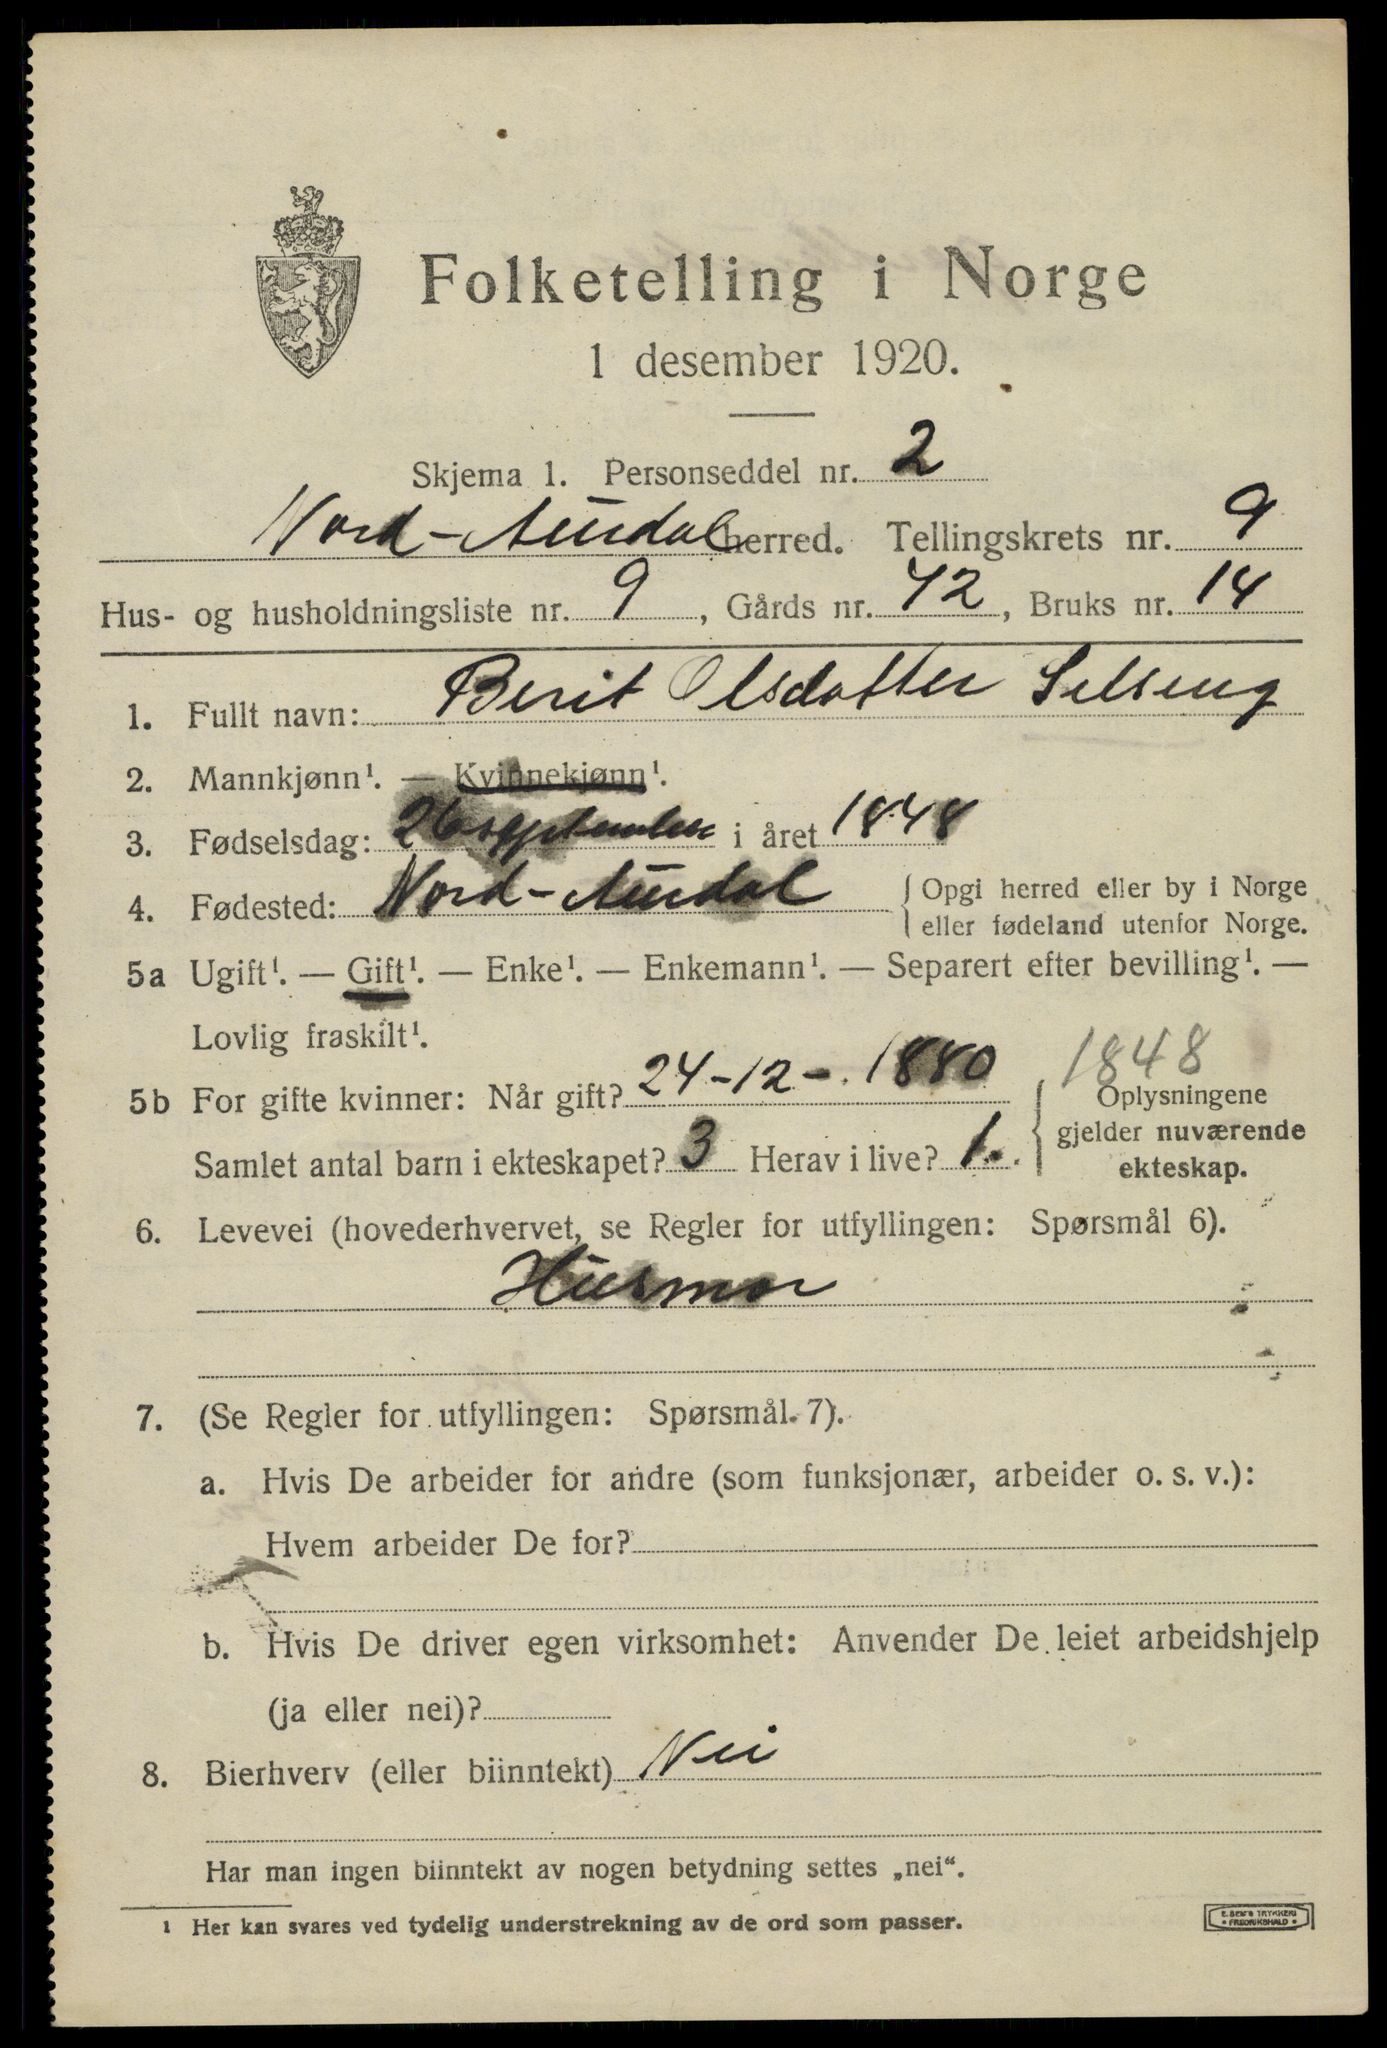 Folketelling i Norge
1 desember 1920.
Skjema 1. Personseddel nr. 2
Nord-Aurdal herred. Tellingskrets nr. 9
Hus- og husholdningsliste nr. 9, Gårds nr. 72, Bruks nr. 14
1. Fullt navn: Berit Olsdatter Selseng
2. Mannkjønn¹. — Kvinnekjønn¹.
3. Fødselsdag: 26 september i året 1848
4. Fødested: Nord-Aurdal { Opgi herred eller by i Norge
eller fødeland utenfor Norge.
5a Ugift¹. — Gift¹. — Enke¹. — Enkemann¹. — Separert efter bevilling¹. —
Lovlig fraskilt¹.
1848
5b For gifte kvinner: Når gift? 24-12-. 1880
Samlet antal barn i ekteskapet? 3 Herav i live? 1.
Oplysningene
gjelder nuværende
ekteskap.
6. Levevei (hovederhvervet, se Regler for utfyllingen: Spørsmål 6).
Husmor
7. (Se Regler for utfyllingen: Spørsmål 7).
a. Hvis De arbeider for andre (som funksjonær, arbeider o. s. v.):
Hvem arbeider De for?
b. Hvis De driver egen virksomhet: Anvender De leiet arbeidshjelp
(ja eller nei)?
8. Bierhverv (eller biinntekt) Nei
Har man ingen biinntekt av nogen betydning settes „nei“.
1 Her kan svares ved tydelig understrekning av de ord som passer.
E. SEM'S TRYKKERI
• FREDRIKSHALD •